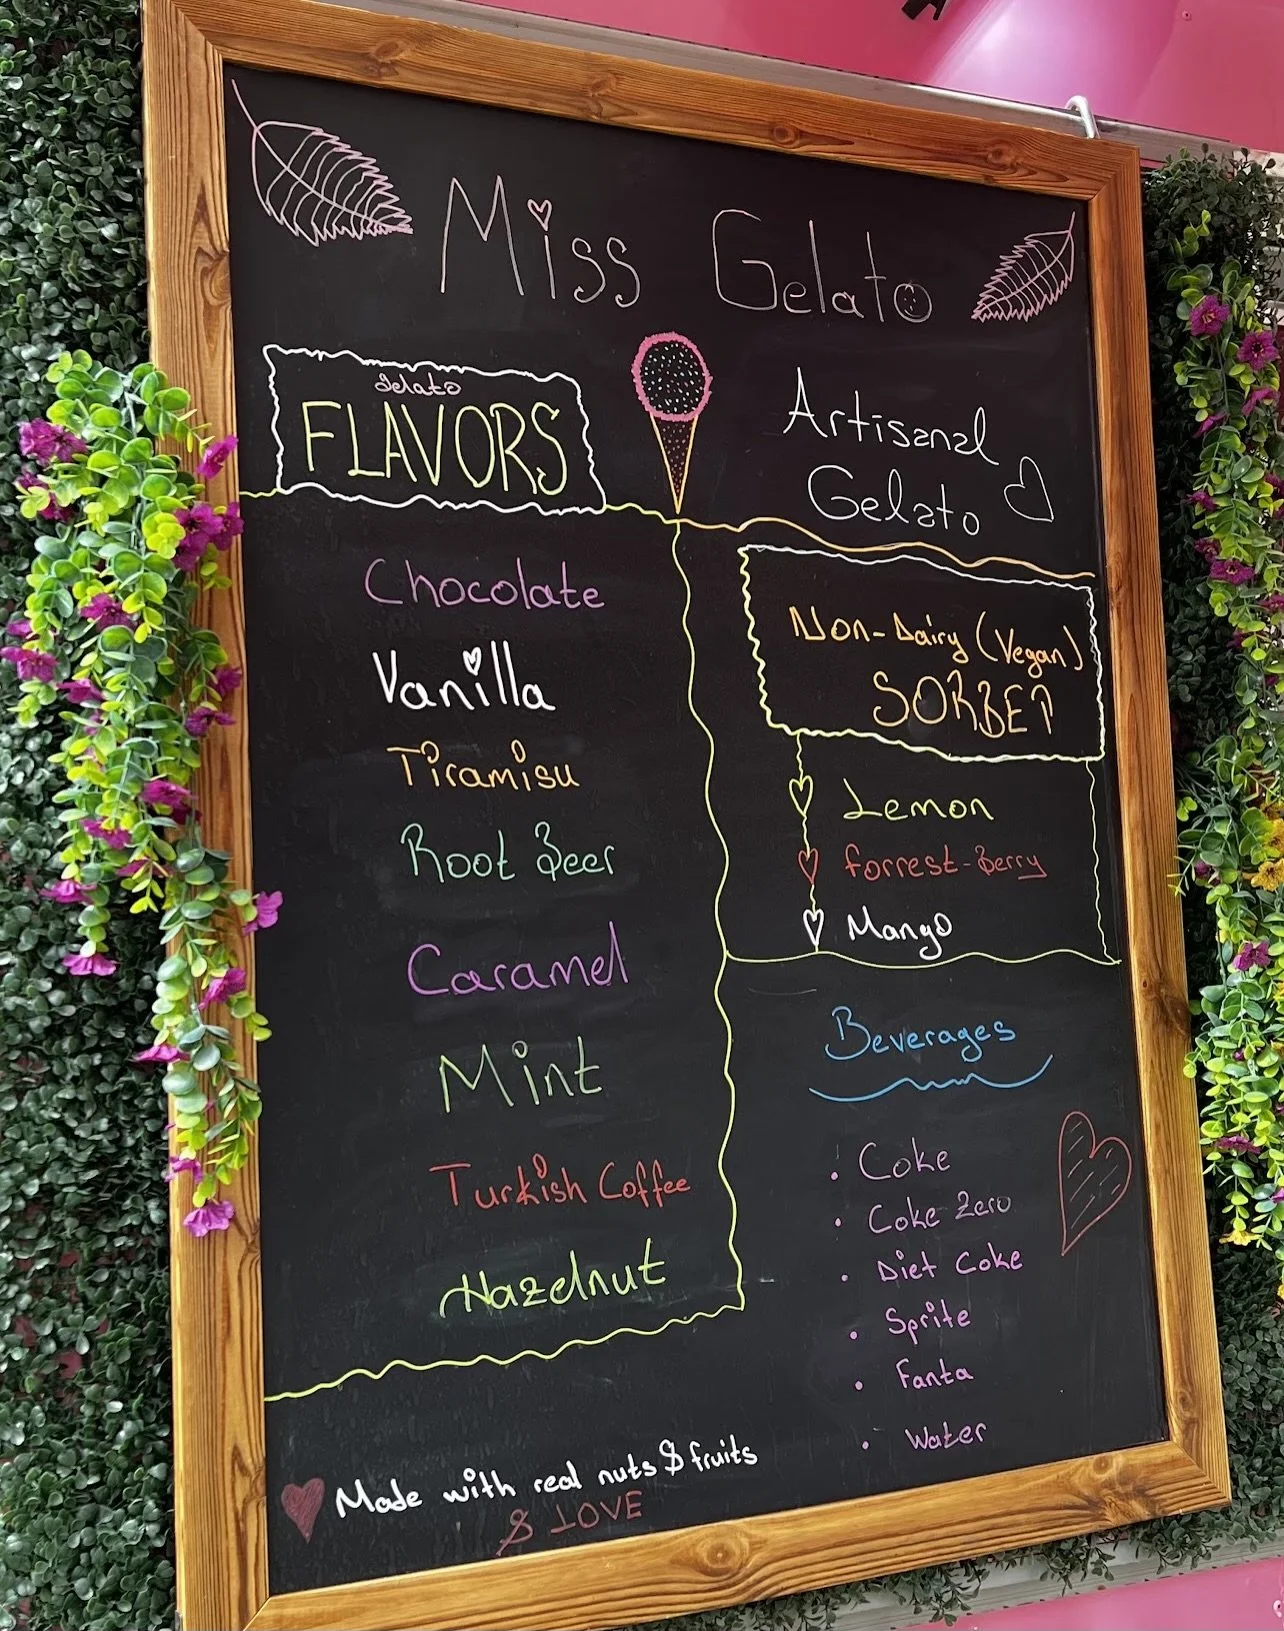 Miss Gelato
Gelato
FLAVORS
Chocolate
Vanilla
Tiramisu
Root Beer
Caramel
Mint
Turkish Coffee
Hazelnut
Artisanal
Gelato
Non-Dairy (Vegan)
SORBET
Lemon
Forrest-Berry
Mango
Beverages
• Coke
• Coke Zero
• Diet Coke
• Sprite
• Fanta
• Water
Made with real nuts & fruits
& LOVE